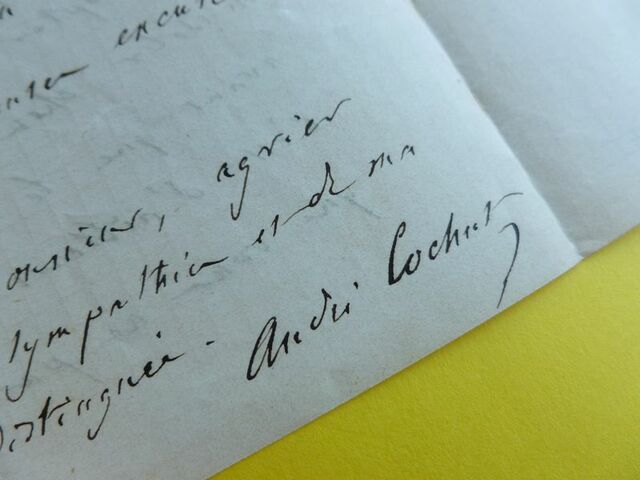 excuse
onsieur, agréer
sympathie et de ma
distinguée. André Cochut